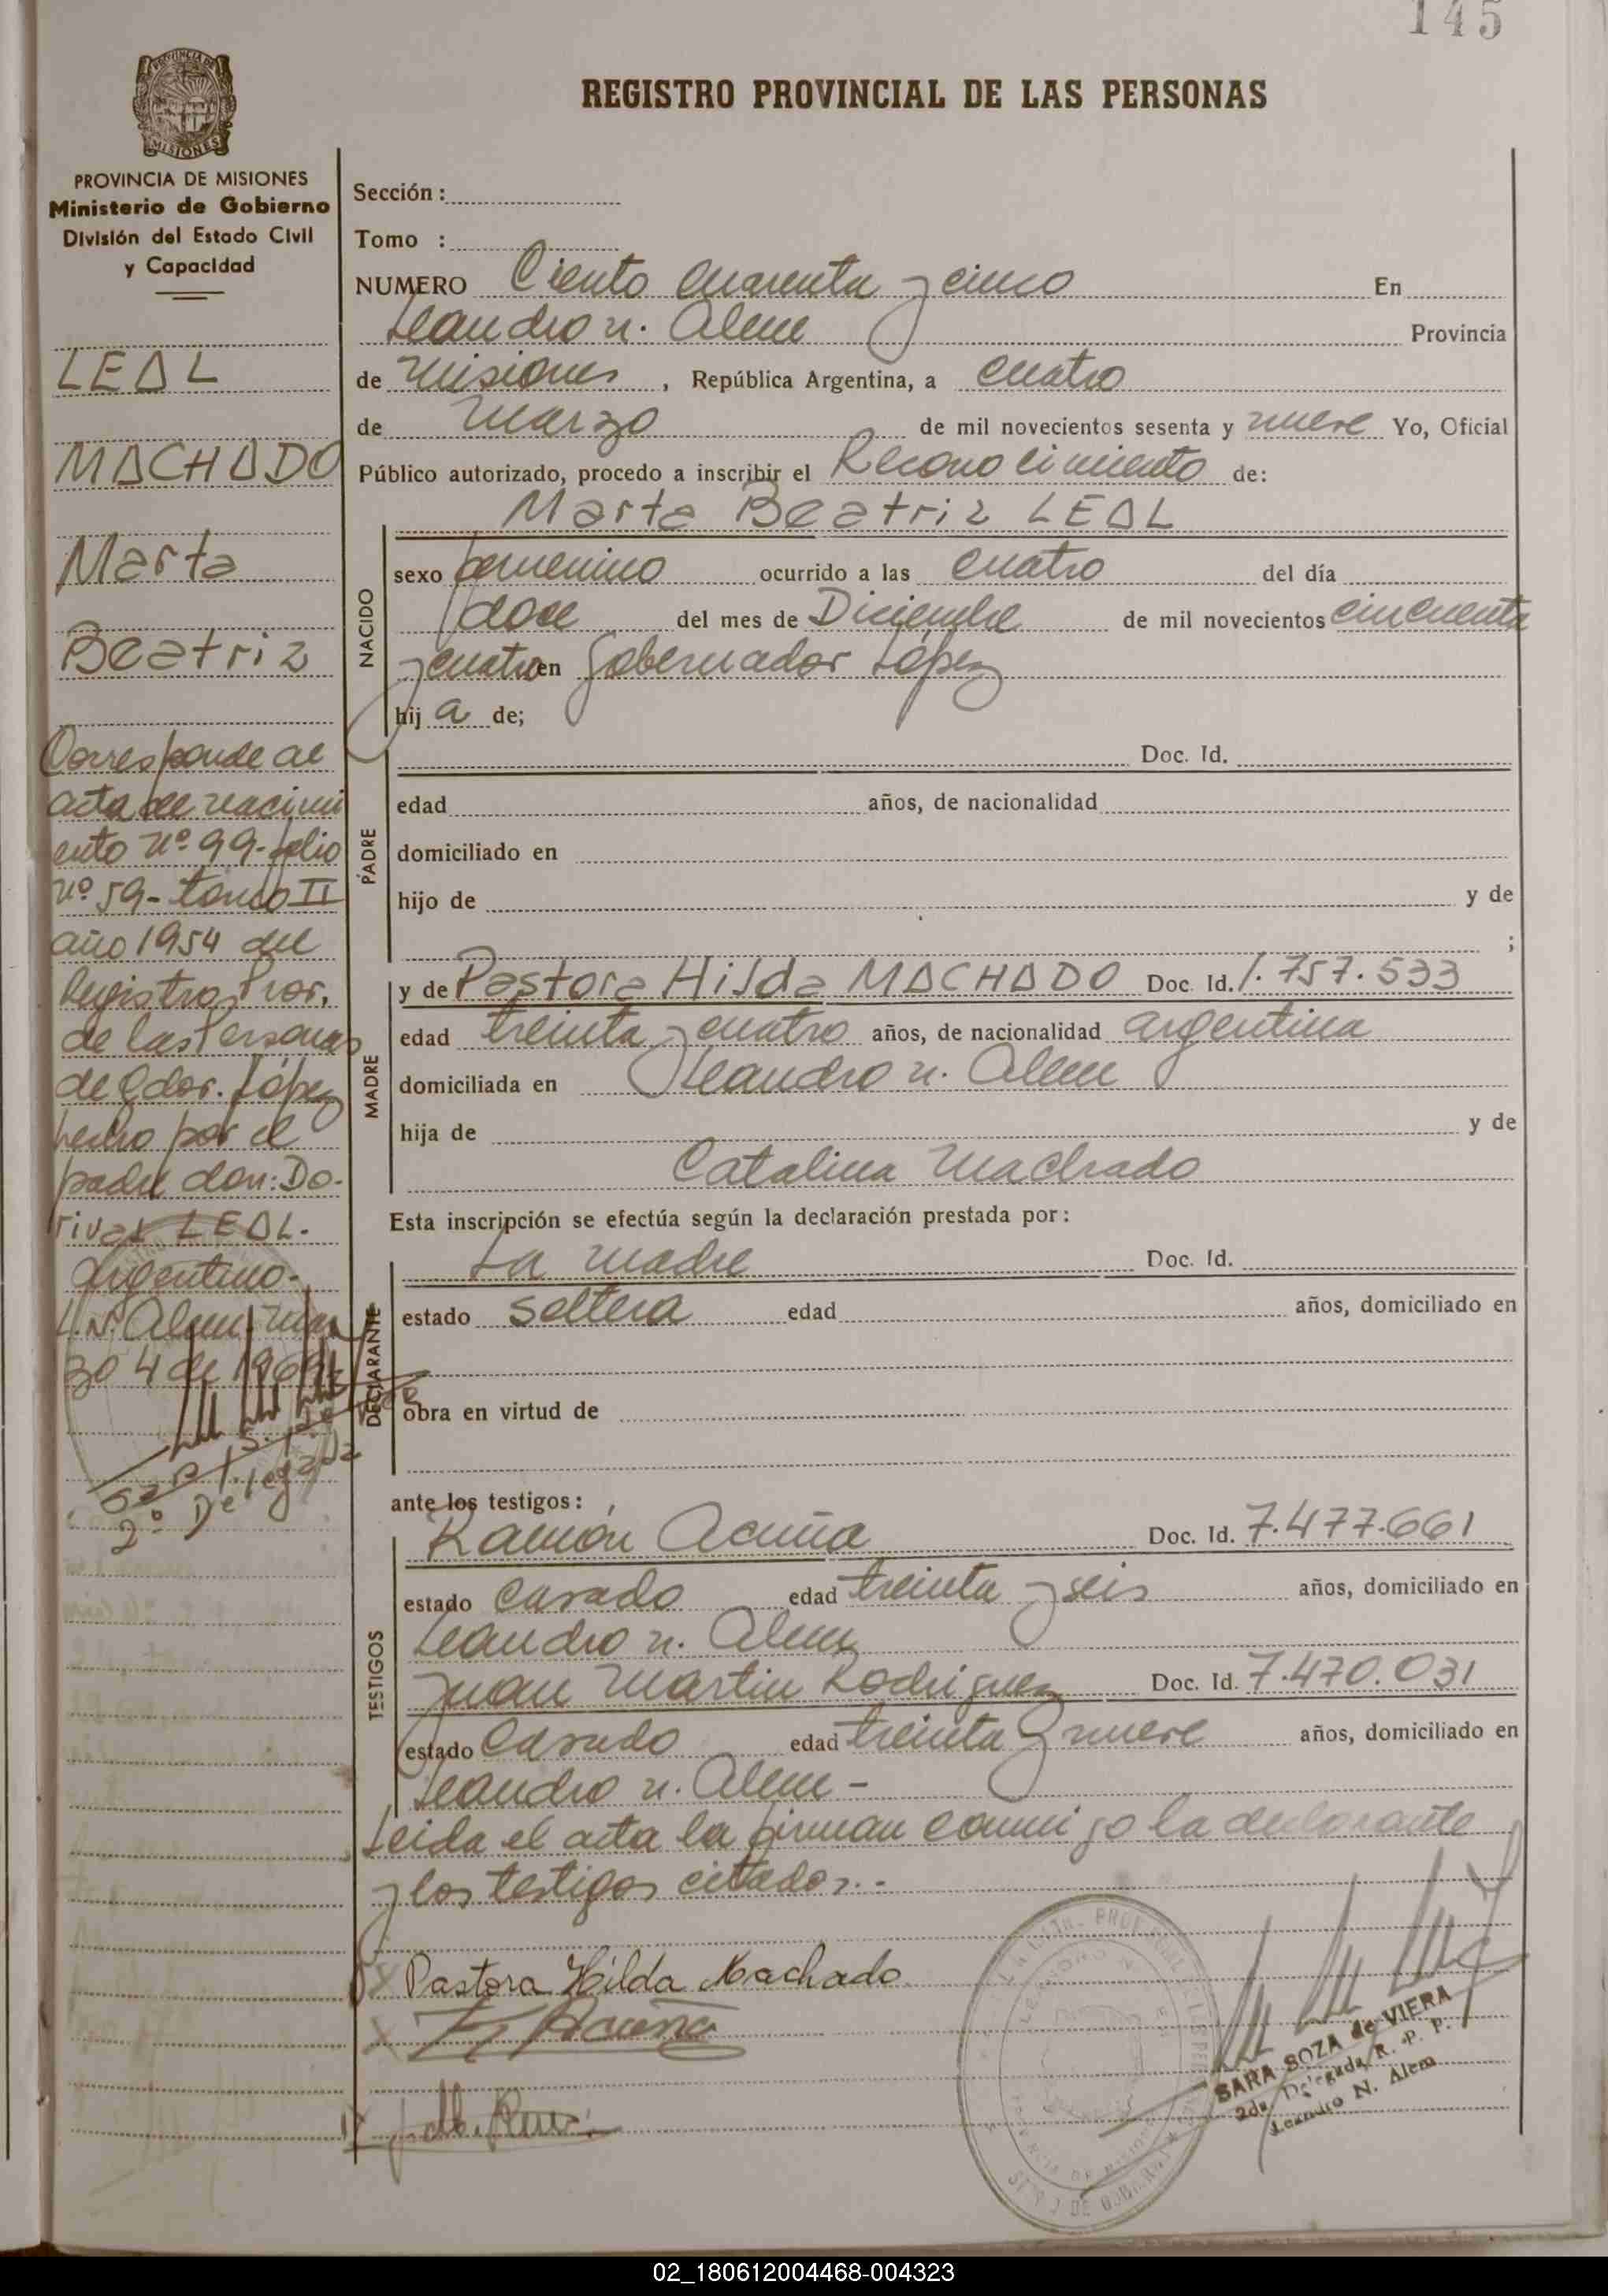 145
REGISTRO PROVINCIAL DE LAS PERSONAS
PROVINCIA DE MISIONES
Ministerio de Gobierno
División del Estado Civil
y Capacidad
LEAL
MACHADO
Marta
Beatriz
Corresponde al
acta de nacimi
ento Nº 99-folio
Nº 59-tomo II
año 1954 del
Registro Prov.
de las Personas
de Gdor. López
hecho por el
padre don: Do-
rival LEAL.
argentino.
L.N. Alem, Mar
zo 4 de 1969
2º Delegada
Sección :
Tomo :
NUMERO Ciento cuarenta y cinco En
Leandro N. Alem Provincia
de Misiones , República Argentina, a cuatro
de Marzo de mil novecientos sesenta y nueve Yo, Oficial
Público autorizado, procedo a inscribir el Reconocimiento de:
Marta Beatriz LEAL
NACIDO
sexo femenino ocurrido a las cuatro del día
doce del mes de Diciembre de mil novecientos cincuenta
y cuatro en Gobernador López
hij a de;
PADRE
Doc. Id.
edad años, de nacionalidad
domiciliado en
hijo de y de
;
MADRE
y de Pastora Hilda MACHADO Doc. Id. 1.757.533
edad treinta y cuatro años, de nacionalidad argentina
domiciliada en Leandro N. Alem
hija de y de
Catalina Machado
Esta inscripción se efectúa según la declaración prestada por:
DECLARANTE
La madre Doc. Id.
estado soltera edad años, domiciliado en
obra en virtud de
ante los testigos:
TESTIGOS
Ramón Acuña Doc. Id. 7.477.661
estado casado edad treinta y seis años, domiciliado en
Leandro N. Alem
Juan Martin Rodriguez Doc. Id. 7.470.031
estado casado edad treinta y nueve años, domiciliado en
Leandro N. Alem -
Leida el acta la firman conmigo la declarante
y los testigos citados.-
Pastora Hilda Machado
Acuña
SARA SOZA de VIERA
2da Delegada R. P. P.
Leandro N. Alem
02_180612004468-004323